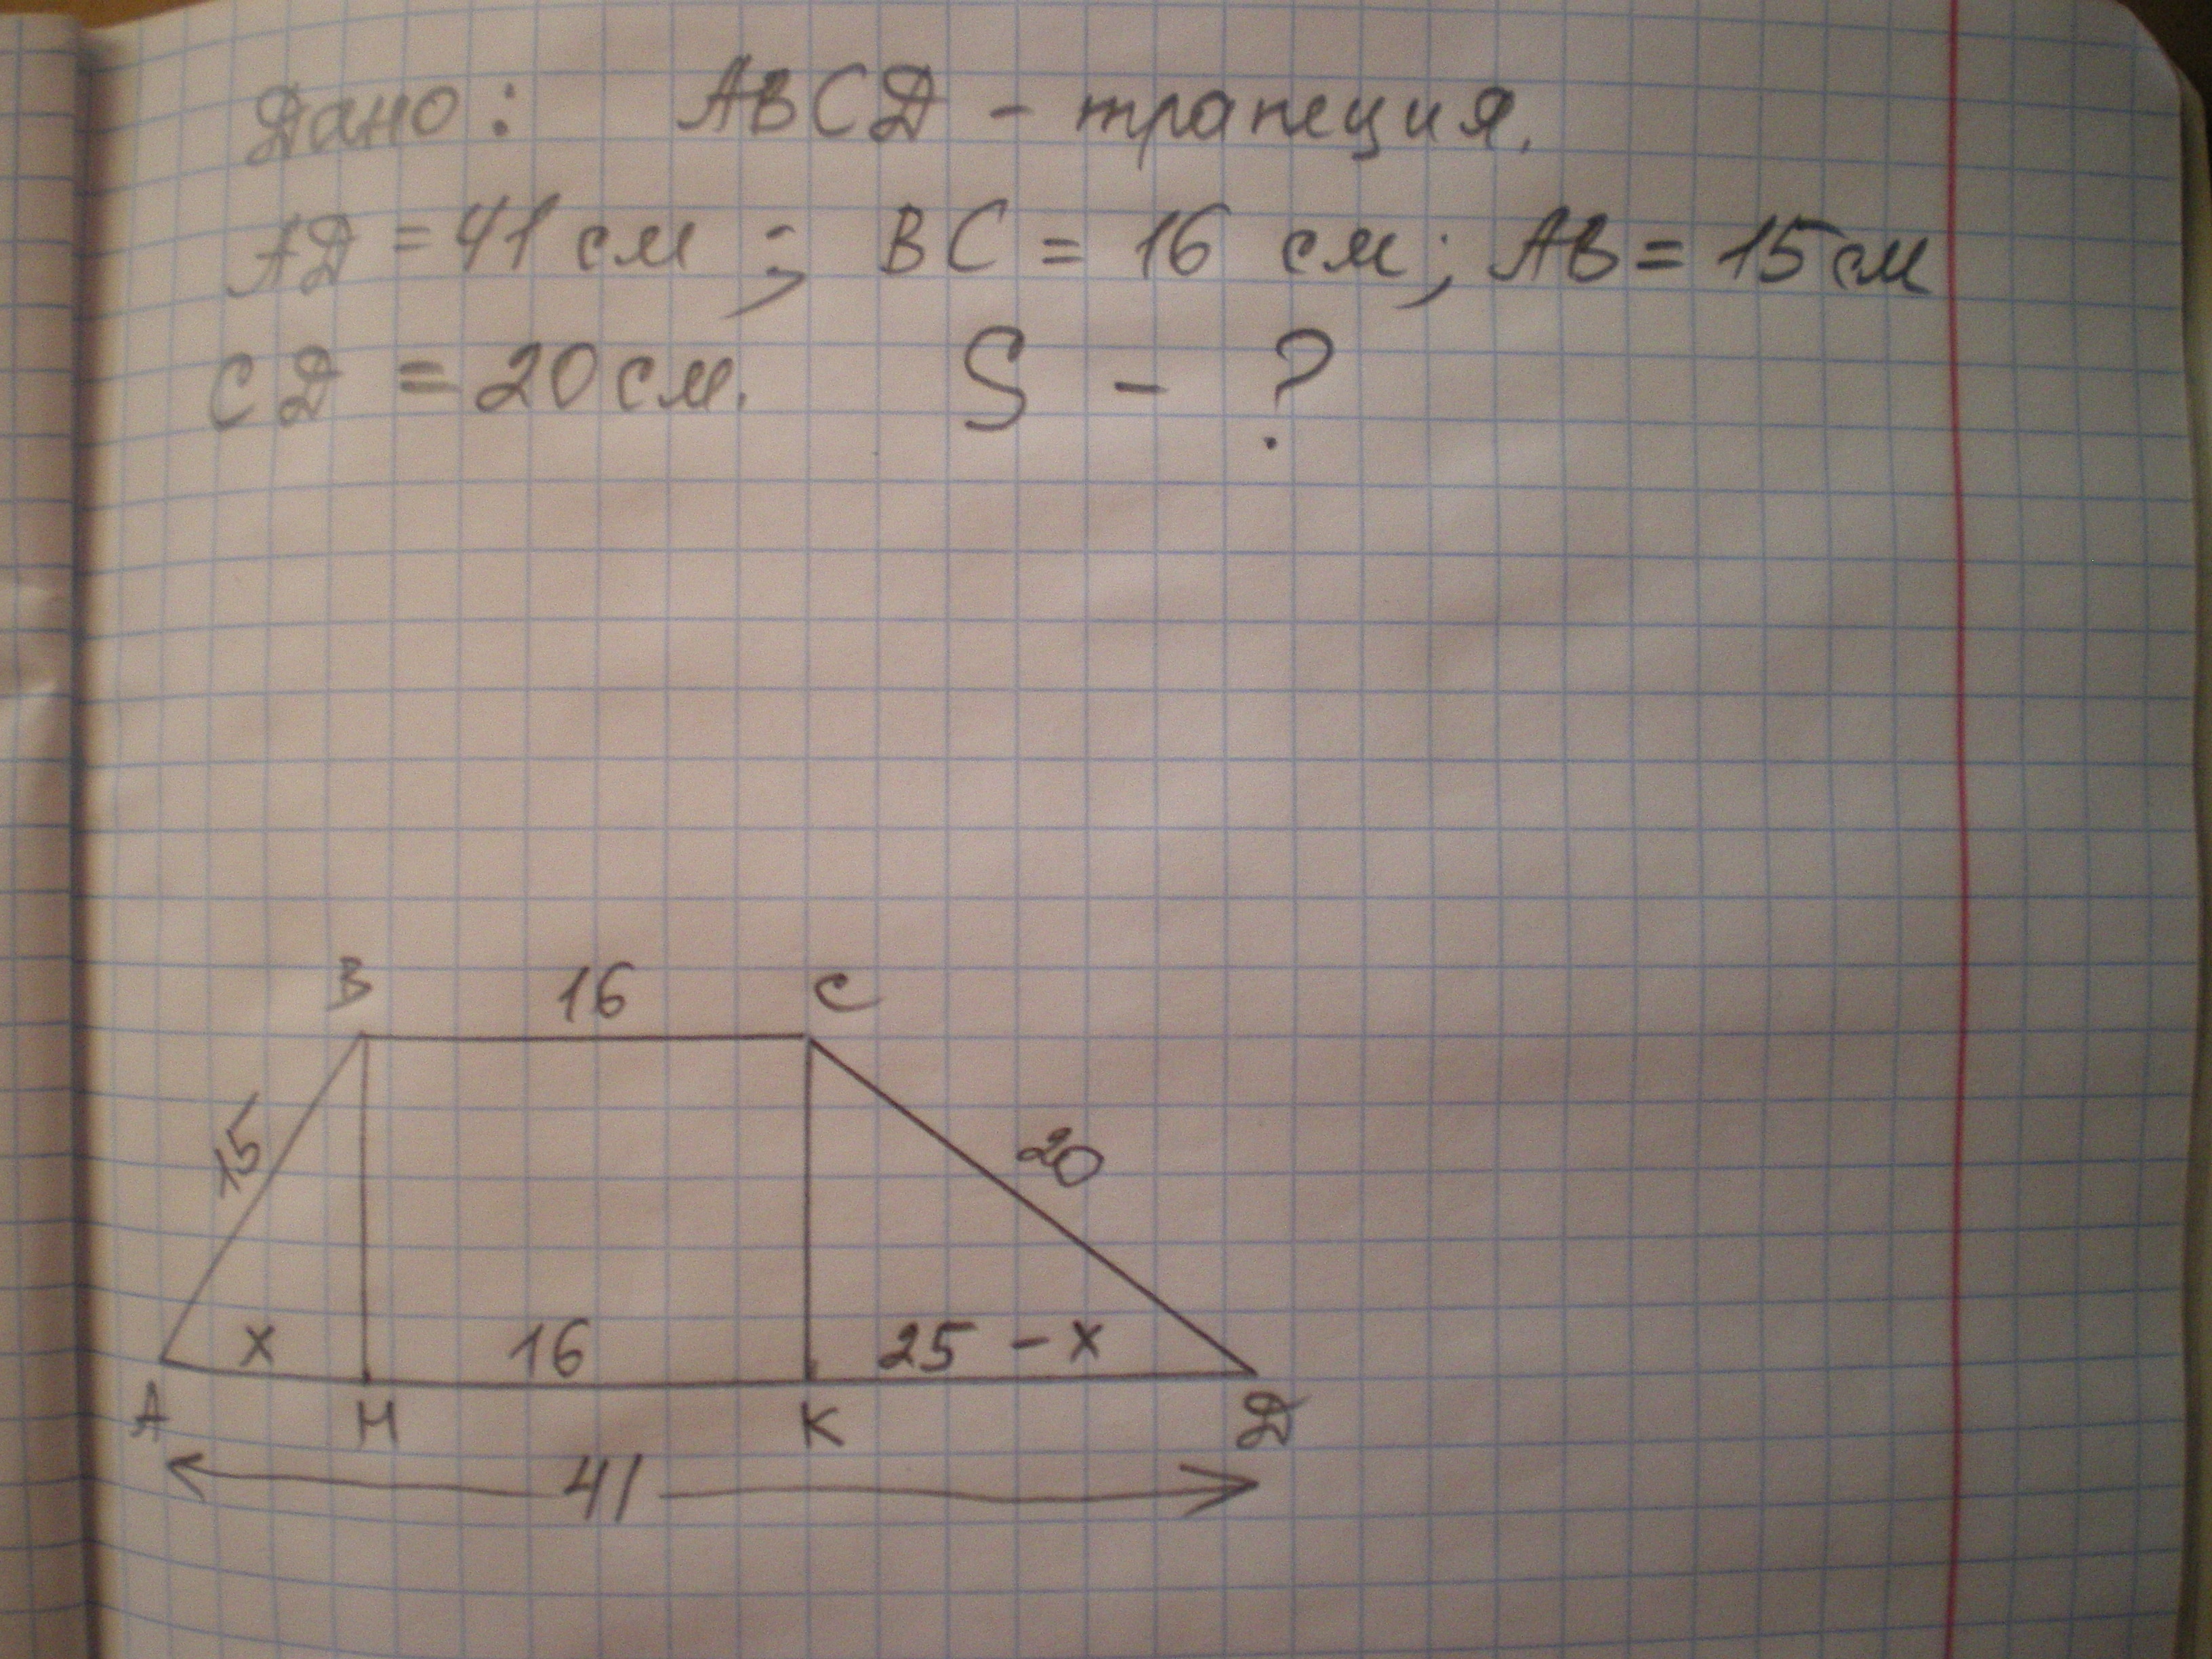 Дано: ABCД - трапеция.
AД = 41 см; BC = 16 см; AB = 15 см
CД = 20 см. S - ?
B 16 C
15 20
x 16 25 - x
A H K Д
41